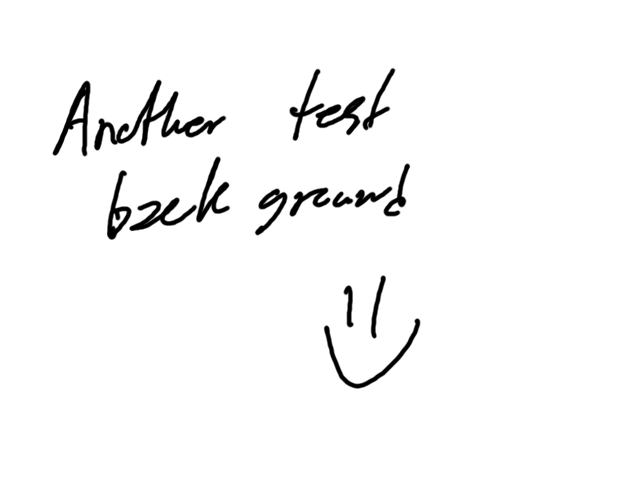 Another test
back ground